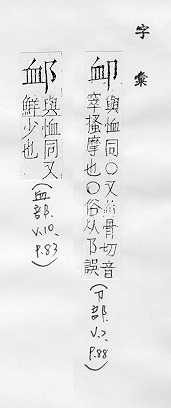 字彙
卹
與恤同○又蘇骨切音
窣搔摩也○俗从阝誤
(卩部. V.2. P.88)
䘏
與恤同又
鮮少也
(血部. V.10. P.83)